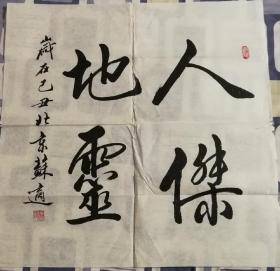 人傑
地靈
歲在己丑北京蘇適